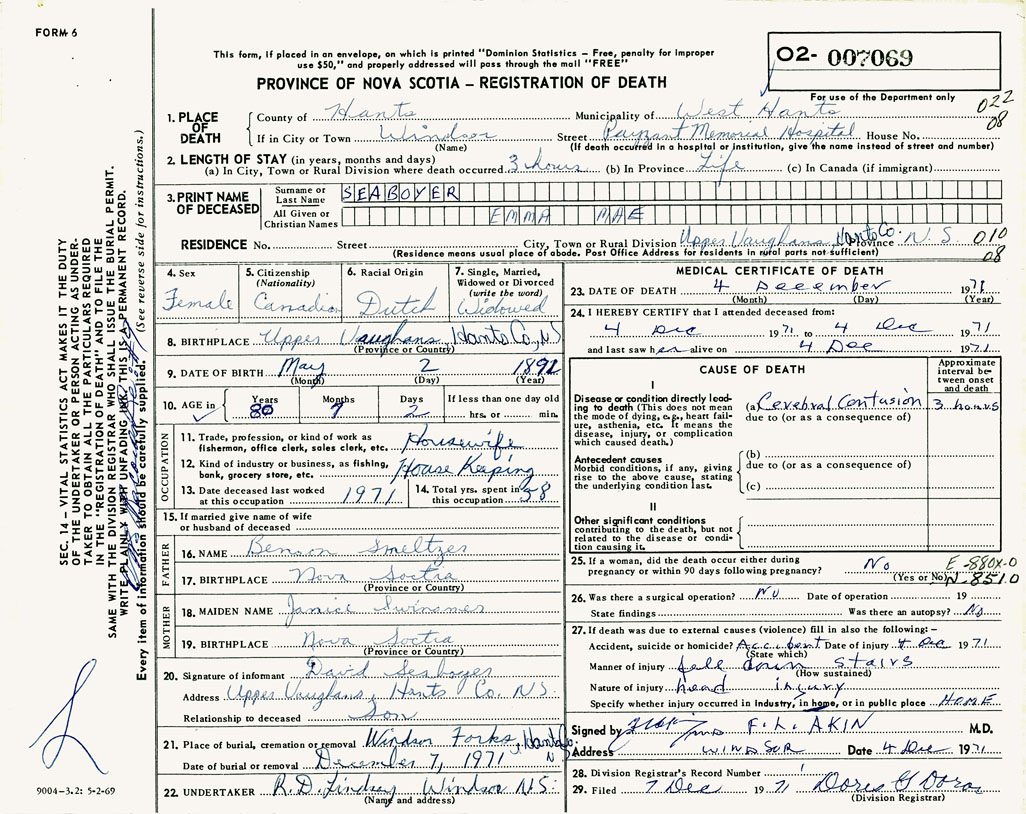 FORM 6
This form, if placed in an envelope, on which is printed "Dominion Statistics – Free, penalty for improper
use $50," and properly addressed will pass through the mail "FREE"
O2- 007069
PROVINCE OF NOVA SCOTIA – REGISTRATION OF DEATH
For use of the Department only
022
08
1. PLACE OF DEATH
County of Hants Municipality of West Hants
If in City or Town Windsor Street Payzant Memorial Hospital House No.
(Name) (If death occurred in a hospital or institution, give the name instead of street and number)
2. LENGTH OF STAY (in years, months and days)
(a) In City, Town or Rural Division where death occurred 3 hours (b) In Province Life (c) In Canada (if immigrant)
3. PRINT NAME OF DECEASED
Surname or Last Name SEABOYER
All Given or Christian Names EMMA MAE
RESIDENCE No. Street City, Town or Rural Division Upper Vaughans, Hants Co. Province N.S. 010
(Residence means usual place of abode. Post Office Address for residents in rural parts not sufficient) 08
4. Sex
Female
5. Citizenship
(Nationality)
Canadian
6. Racial Origin
Dutch
7. Single, Married,
Widowed or Divorced
(write the word)
Widowed
8. BIRTHPLACE Upper Vaughans, Hants Co, NS
(Province or Country)
9. DATE OF BIRTH May 2 1892
(Month) (Day) (Year)
10. AGE in
Years Months Days If less than one day old
80 7 2 hrs. or min.
OCCUPATION
11. Trade, profession, or kind of work as
fishermen, office clerk, sales clerk, etc. Housewife
12. Kind of industry or business, as fishing,
bank, grocery store, etc. House Keeping
13. Date deceased last worked
at this occupation 1971
14. Total yrs. spent in
this occupation 58
15. If married give name of wife
or husband of deceased
FATHER
16. NAME Benson Smeltzer
17. BIRTHPLACE Nova Soctra
(Province or Country)
MOTHER
18. MAIDEN NAME Janice Swinamer
19. BIRTHPLACE Nova Soctra
(Province or Country)
20. Signature of informant David Seaboyer
Address Upper Vaughans, Hants Co. N.S.
Relationship to deceased Son
21. Place of burial, cremation or removal Windsor Forks, Hants Co. N
Date of burial or removal December 7, 1971
22. UNDERTAKER R.D. Lindsay Windsor N.S.
(Name and address)
MEDICAL CERTIFICATE OF DEATH
23. DATE OF DEATH 4 December 1971
(Month) (Day) (Year)
24. I HEREBY CERTIFY that I attended deceased from:
4 Dec 1971 to 4 Dec 1971
and last saw her alive on 4 Dec 1971
CAUSE OF DEATH
Approximate
interval be-
tween onset
and death
I
Disease or condition directly lead-
ing to death (This does not mean
the mode of dying, e.g., heart fail-
ure, asthenia, etc. It means the
disease, injury, or complication
which caused death.)
(a) Cerebral Contusion 3 hours
due to (or as a consequence of)
Antecedent causes
Morbid conditions, if any, giving
rise to the above cause, stating
the underlying condition last.
(b)
due to (or as a consequence of)
(c)
II
Other significant conditions
contributing to the death, but not
related to the disease or condi-
tion causing it.
25. If a woman, did the death occur either during
pregnancy or within 90 days following pregnancy? No
(Yes or No)
E-880X-0
N-851.0
26. Was there a surgical operation? No Date of operation 19
State findings Was there an autopsy? No
27. If death was due to external causes (violence) fill in also the following: –
Accident, suicide or homicide? Accident Date of injury 4 Dec 1971
(State which)
Manner of injury fell down stairs
(How sustained)
Nature of injury head injury
Specify whether injury occurred in industry, in home, or in public place HOME
Signed by F. L. AKIN M.D.
Address WINDSOR Date 4 Dec 1971
28. Division Registrar's Record Number
29. Filed 7 Dec 1971 Doris G
(Division Registrar)
SEC. 14 – VITAL STATISTICS ACT MAKES IT THE DUTY
OF THE UNDERTAKER OR PERSON ACTING AS UNDER-
TAKER TO OBTAIN ALL THE PARTICULARS REQUIRED
IN THE "REGISTRATION OF DEATH" AND TO FILE THE
SAME WITH THE DIVISION REGISTRAR WHO SHALL ISSUE THE BURIAL PERMIT.
WRITE PLAINLY WITH UNFADING INK, THIS IS A PERMANENT RECORD.
Every item of information should be carefully supplied. (See reverse side for instructions.)
9004-3.2: 5-2-69